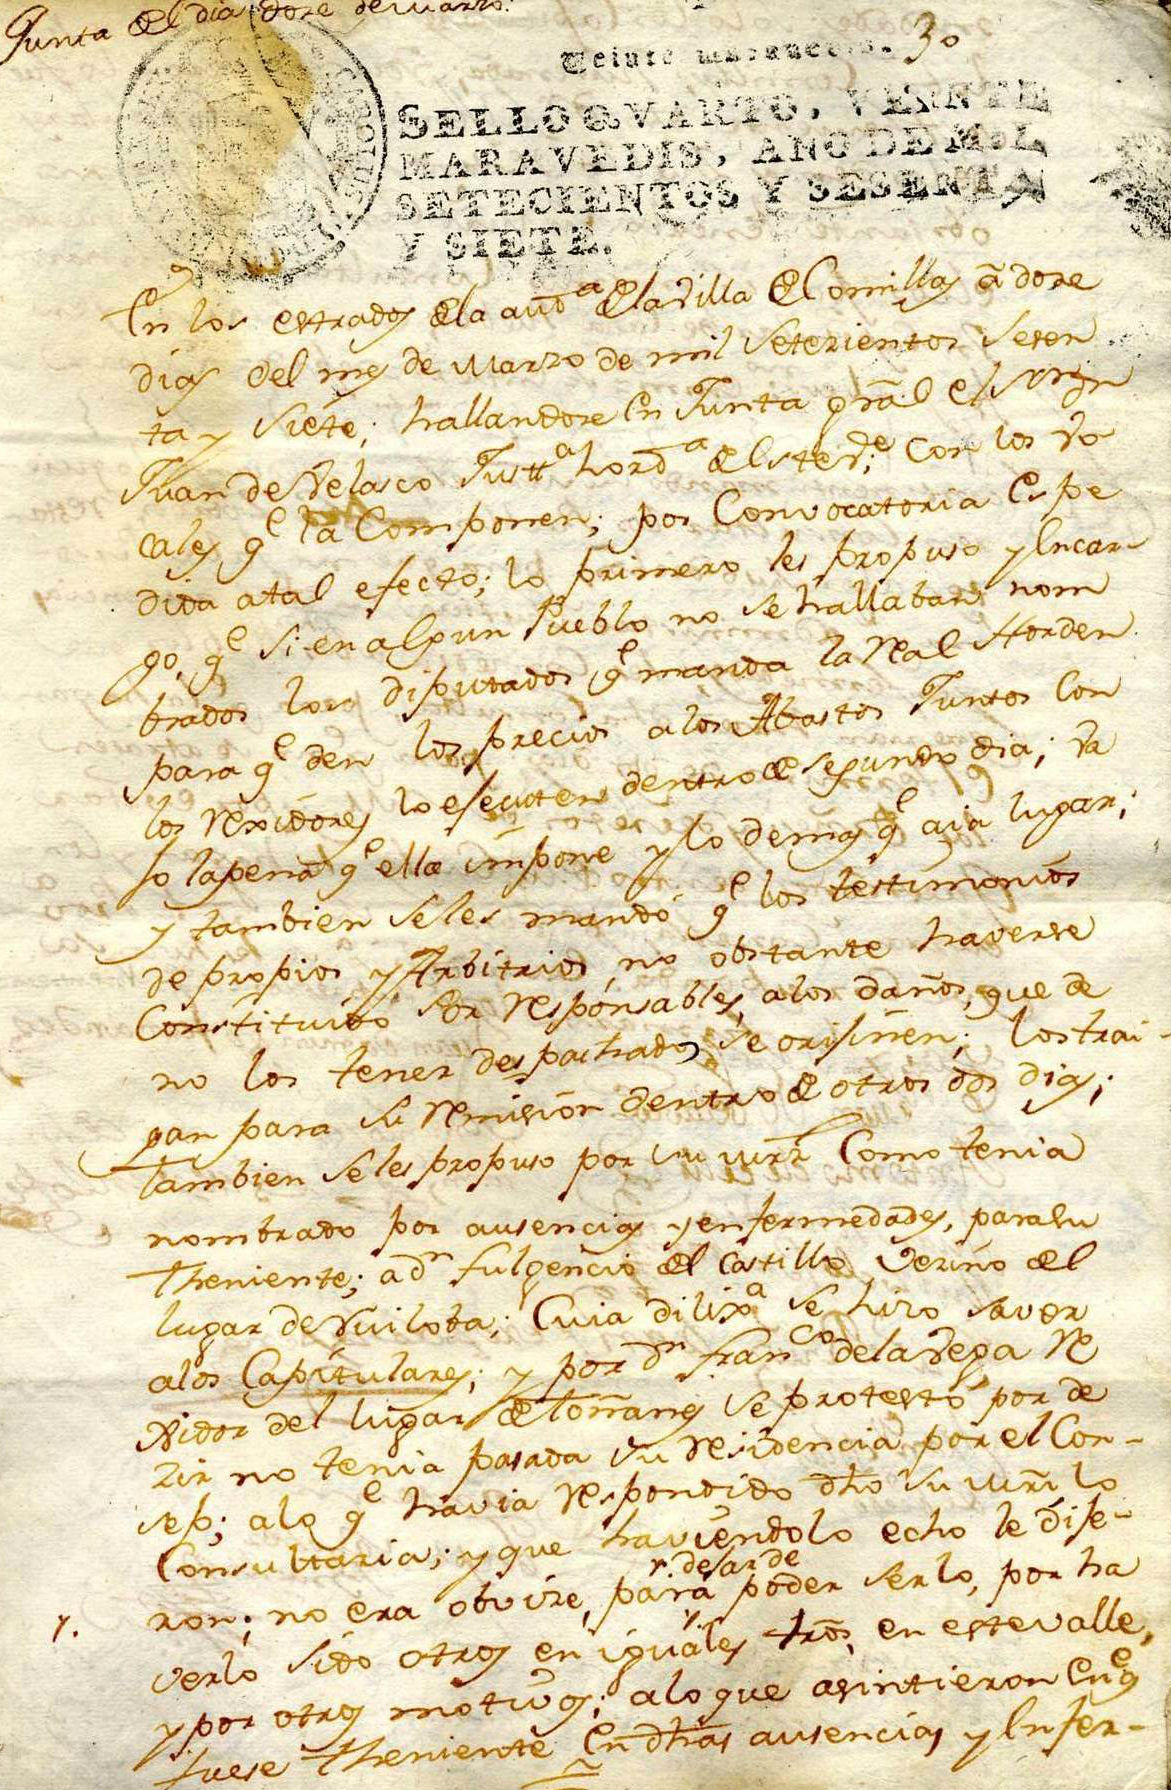 Junta del dia doze de Marzo.
Veinte maravedis. 30
SELLO QVARTO, VEINTE
MARAVEDIS, AÑO DE MIL
SETECIENTOS Y SESENTA
Y SIETE.
En los estrados de la aud.ª de la Villa de Comillas â doze
dias del mes de Marzo de mil setezientos sesen
ta y siete; hallandose en Junta grâl el Sr.
Juan de Velasco Justt.ª hord.ª de este v.e con los vo
cales q.e la Componen; por Convocatoria Espe
dida atal efecto; lo primero les propuso y Encar
gó, q.e si en algun Pueblo no se hallaban nom
brados los diputados q.e manda la Real Horden
para q.e den los precios alos Abastos Juntos con
los Rexidores lo ejecuten dentro de segundo dia; va
jo lapena q.e ella impone y lo demas q.e aia lugar;
y tambien seles mandó q.e los testimonios
de propios y Arbitrios, no obstante haverse
Constituido Por Responsables, alos daños, que de
no los tener despachados se orijinen; los trai-
gan para su Remision dentro de otros dos dias;
tambien seles propuso por su mrd Como tenia
nombrado por ausencias y enfermedades, para su
theniente; a dn fulgencio del Castillo Vezino del
lugar de Ruiloba; Cuia dilix.ª se hizo saver
alos Capitulares; y por dn Fran.co dela Vega Re
xidor del lugar de Toñanes se protestó por de
zir no tenia pasada su Residencia por el Con-
sejo; alo q.e havia Respondido dho su mrd lo
Consultaria; y que haviendolo echo le dije-
r. dejar de
ron; no era obvize, para poder serlo, por ha
y.
verlo sido otros en iguales trõs, en este valle,
y por otros motivos; alo que asintieron En q.e
fuese theniente En dhas ausencias y Enfer-